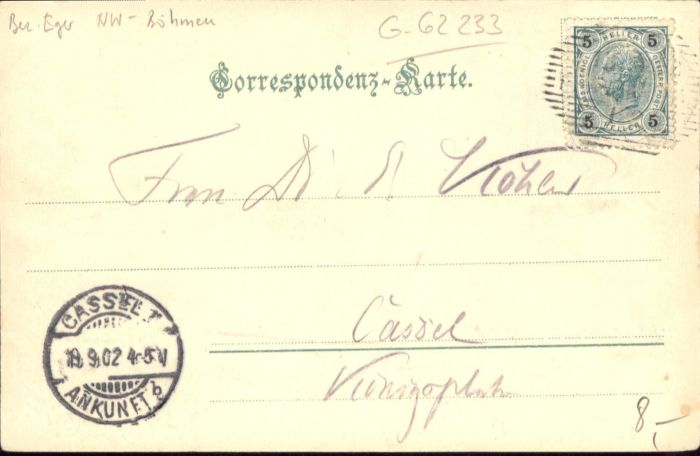 Bez. Eger NW-Böhmen
G-62 233
5 HELLER 5
5 HELLER 5
Correspondenz-Karte.
Frau Dr. Köhler
Cassel
Königsplatz
CASSEL 1
19.9.02 4-5V
ANKUNFT b
8,-